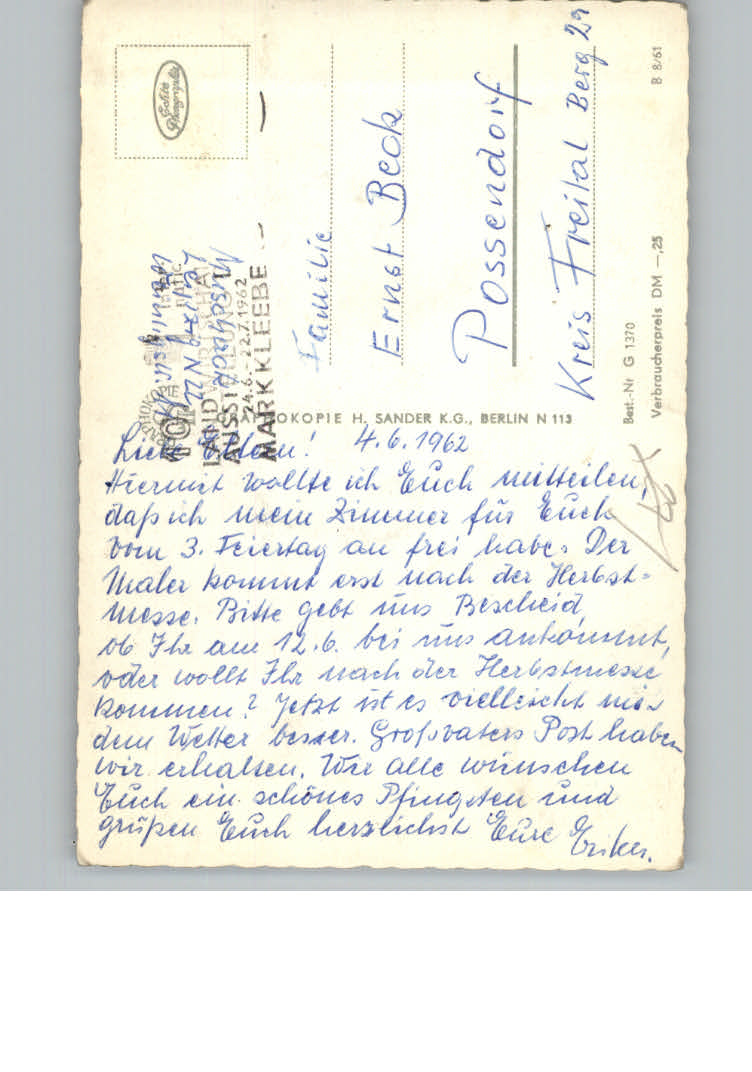 Liebe Eltern! 4.6.1962
Hiermit wollte ich Euch mitteilen,
daß ich mein Zimmer für Euch
vom 3. Feiertag an frei habe. Der
Maler kommt erst nach der Herbst-
messe. Bitte gebt uns Bescheid,
ob Ihr am 12.6. bei uns ankommt,
oder wollt Ihr nach der Herbstmesse
kommen? Jetzt ist es vielleicht mit
dem Wetter besser. Großvaters Post haben
wir erhalten. Wir alle wünschen
Euch ein schönes Pfingsten und
grüßen Euch herzlichst Eure Erika.
Familie
Ernst Beck
Possendorf
Kreis Freital Berg 29
Echte
Photographie
Leipzig N 22
10
LANDWIRTSCHAFTS
AUSSTELLUNG
24.6.-22.7.1962
MARKKLEEBERG
H. SANDER K.G., BERLIN N 113
Best.-Nr G 1370
Verbraucherpreis DM -,25
B 8/61